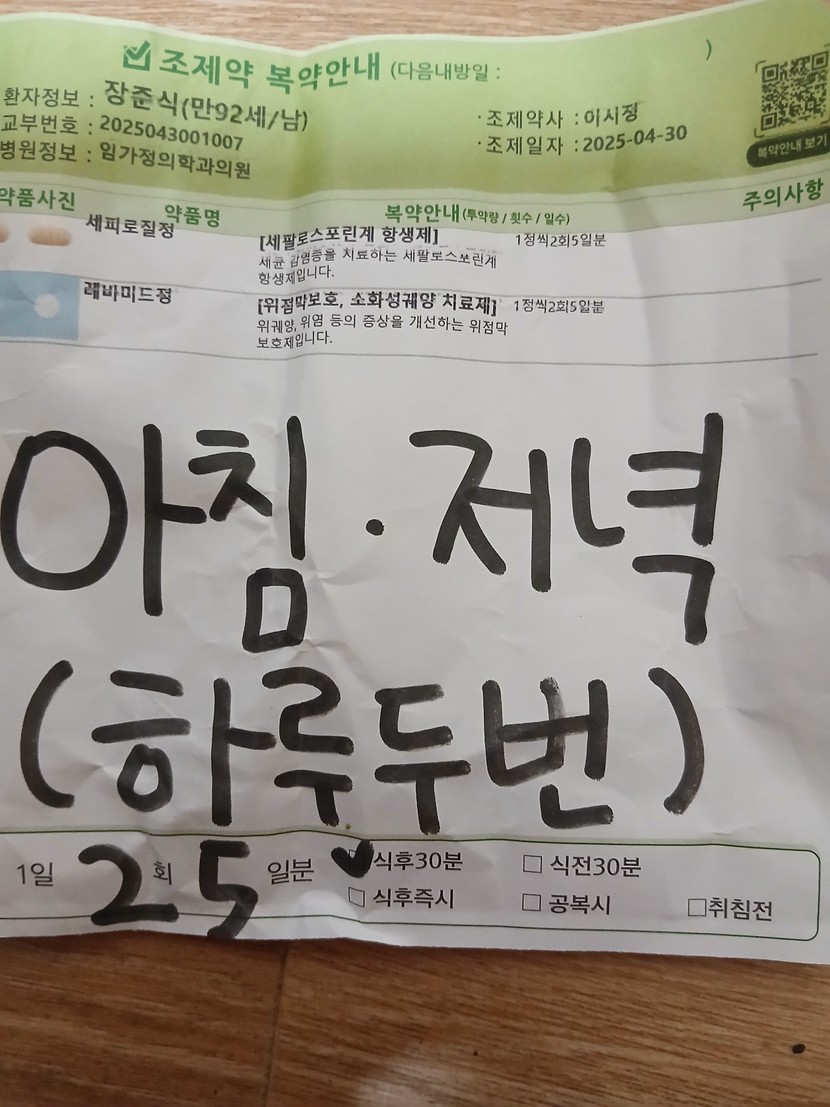 조제약 복약안내 (다음내방일 : )
환자정보 : 장준식(만92세/남)
교부번호 : 2025043001007
병원정보 : 임가정의학과의원
·조제약사 : 이시정
·조제일자 : 2025-04-30
복약안내 보기
약품사진 약품명 복약안내(투약량 / 횟수 / 일수) 주의사항
세피로질정 [세팔로스포린계 항생제] 1정씩2회5일분
세균 감염증을 치료하는 세팔로스포린계
항생제입니다.
레바미드정 [위점막보호, 소화성궤양 치료제] 1정씩2회5일분
위궤양, 위염 등의 증상을 개선하는 위점막
보호제입니다.
아침·저녁
(하루두번)
1일 2회 5일분 식후30분 식전30분
식후즉시 공복시 취침전